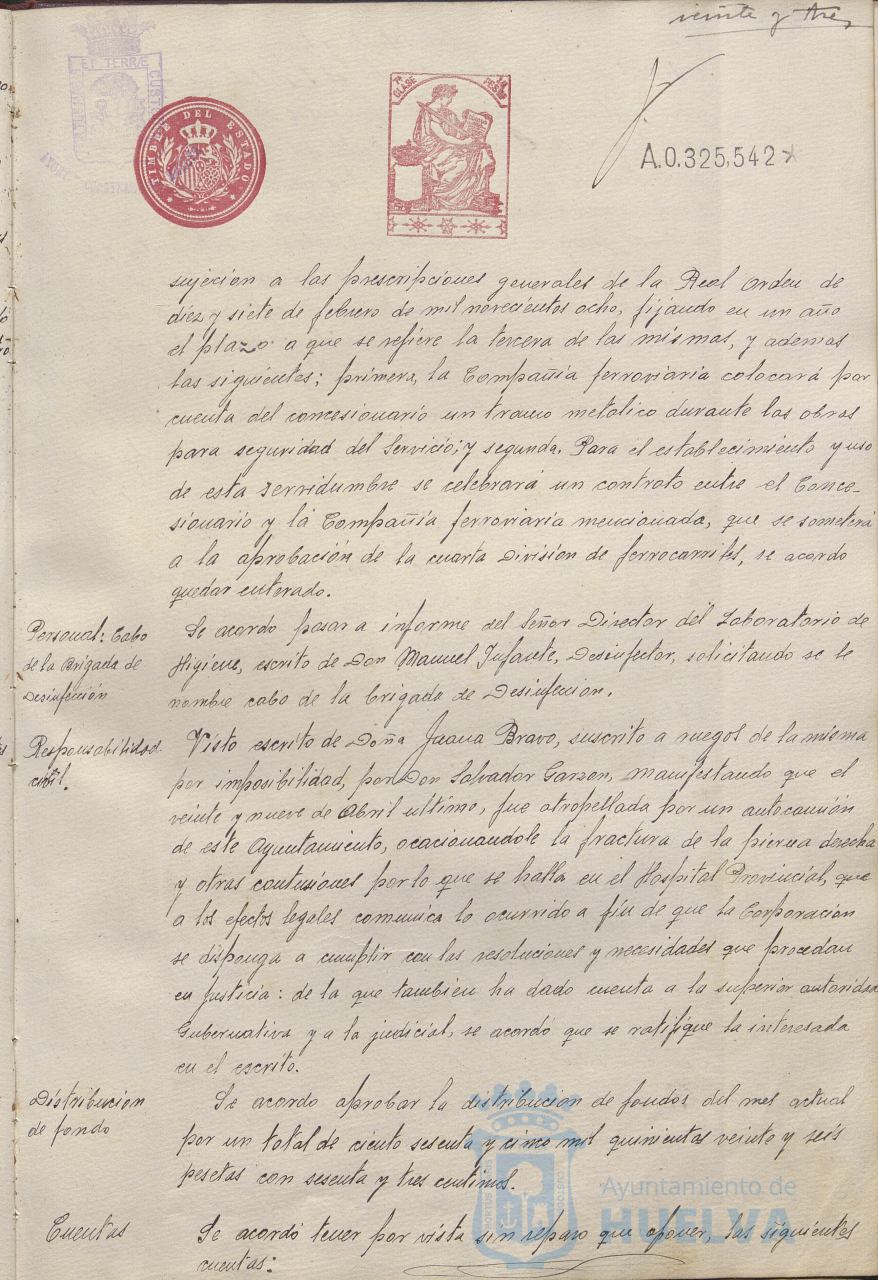 veinte y tres
ET TERRÆ CUST
TIMBRE DEL ESTADO
7ª CLASE
PESETAS
A.0.325,542*
sujecion a las prescripciones generales de la Real orden de
diez y siete de febrero de mil novecientos ocho, fijando en un año
el plazo a que se refiere la tercera de las mismas, y ademas
las siguientes; primera, la Compañia ferroviaria colocará por
cuenta del concesionario un tramo metalico durante las obras
para seguridad del Servicio; y segunda. Para el establecimiento y uso
de esta servidumbre se celebrará un contrato entre el Conce-
sionario y la Compañia ferroviaria mencionada, que se someterá
a la aprobación de la cuarta Division de ferrocarriles, se acordo
quedar enterado.
Personal: Cabo
de la Brigada de
Desinfección
Se acordo pasar a informe del Señor Director del Laboratorio de
Higiene, escrito de Don Manuel Infante, Desinfector, solicitando se le
nombre cabo de la brigada de Desinfeccion.
Responsabilidad
civil.
Visto escrito de Doña Juana Bravo, suscrito a ruegos de la misma
por imposibilidad, por Don Salvador Garzon, manifestando que el
veinte y nueve de Abril ultimo, fue atropellada por un autocamión
de este Ayuntamiento, ocacionandole la fractura de la pierna derecha
y otras contusiones por lo que se halla en el Hospital Provincial, que
a los efectos legales comunica lo ocurrido a fin de que la Corporación
se disponga a cumplir con las resoluciones y necesidades que procedan
en justicia: de la que tambien ha dado cuenta a la superior autoridad
Gubernativa y a la judicial, se acordó que se ratifique la interesada
en el escrito.
Distribucion
de fondo
Se acordo aprobar la distribucion de fondos del mes actual
por un total de ciento sesenta y cinco mil quinientas veinte y seis
pesetas con sesenta y tres centimos.
Cuentas
Se acordó tener por vista sin reparo que oponer, las siguientes
cuentas:
Ayuntamiento de
HUELVA